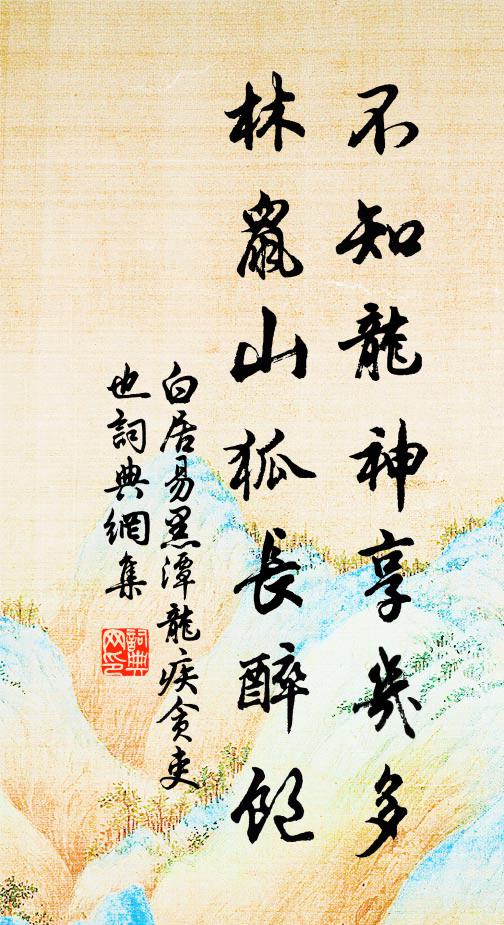 不知龍神享幾多
林鼠山狐長醉飽
白居易黑潭龍疾貪吏
也詞典網集
詞典網印